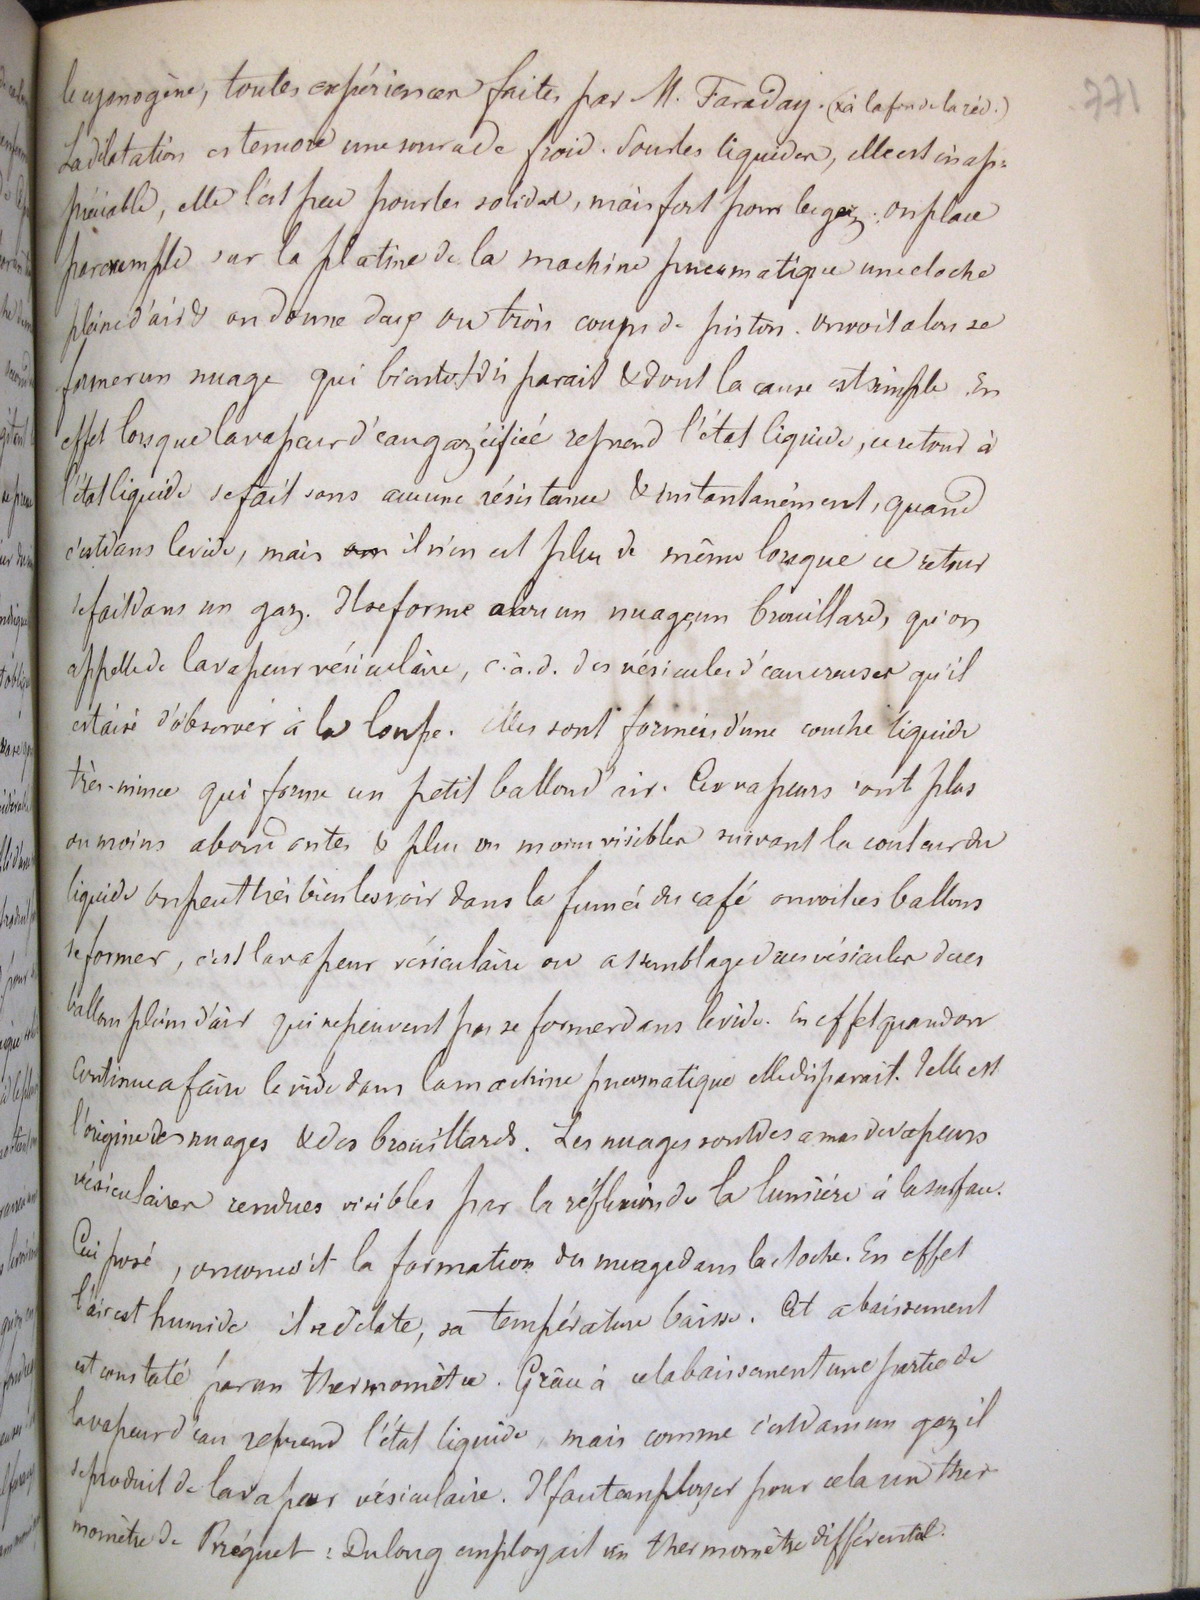 771
le cyanogène, toutes expériences faites par M. Faraday. (x à la fin de la réd.)
La dilatation est encore une source de froid. Pour les liquides, elle est inap-
préciable, elle l'est peu pour les solides, mais fort pour les gaz : on place
par exemple sur la platine de la machine pneumatique une cloche
pleine d'air & on donne deux ou trois coups de piston. on voit alors se
former un nuage qui bientôt disparait & dont la cause est simple. En
effet lorsque la vapeur d'eau gazéifiée reprend l'état liquide, ce retour à
l'état liquide se fait sans aucune résistance & instantanément, quand
c'est dans le vide, mais il n'en est plus de même lorsque ce retour
se fait dans un gaz. Il se forme alors un nuage, un brouillard, qu'on
appelle de la vapeur vésiculaire, c.à.d. des vésicules d'eau creuses qu'il
est aisé d'observer à la loupe. Elles sont formées d'une couche liquide
très-mince qui forme un petit ballon d'air. Ces vapeurs sont plus
ou moins abondantes & plus ou moins visibles suivant la couleur du
liquide on peut très bien les voir dans la fumée du café on voit ces ballons
se former, c'est la vapeur vésiculaire ou assemblage de ces vésicules de ces
ballons pleins d'air qui ne peuvent pas se former dans le vide. En effet quand on
continue a faire le vide dans la machine pneumatique elle disparait. Telle est
l'origine des nuages & des brouillards. Les nuages sont des amas de vapeurs
vésiculaires rendues visibles par la réflexion de la lumière à la surface.
Ceci posé, on conçoit la formation du nuage dans la cloche. En effet
l'air est humide il se dilate, sa température baisse. Cet abaissement
est constaté par un thermomètre. Grâce à cet abaissement une partie de
la vapeur d'eau reprend l'état liquide, mais comme c'est dans un gaz il
se produit de la vapeur vésiculaire. Il faut employer pour cela un ther-
momètre de Bréguet : Dulong employait un thermomètre différentiel.